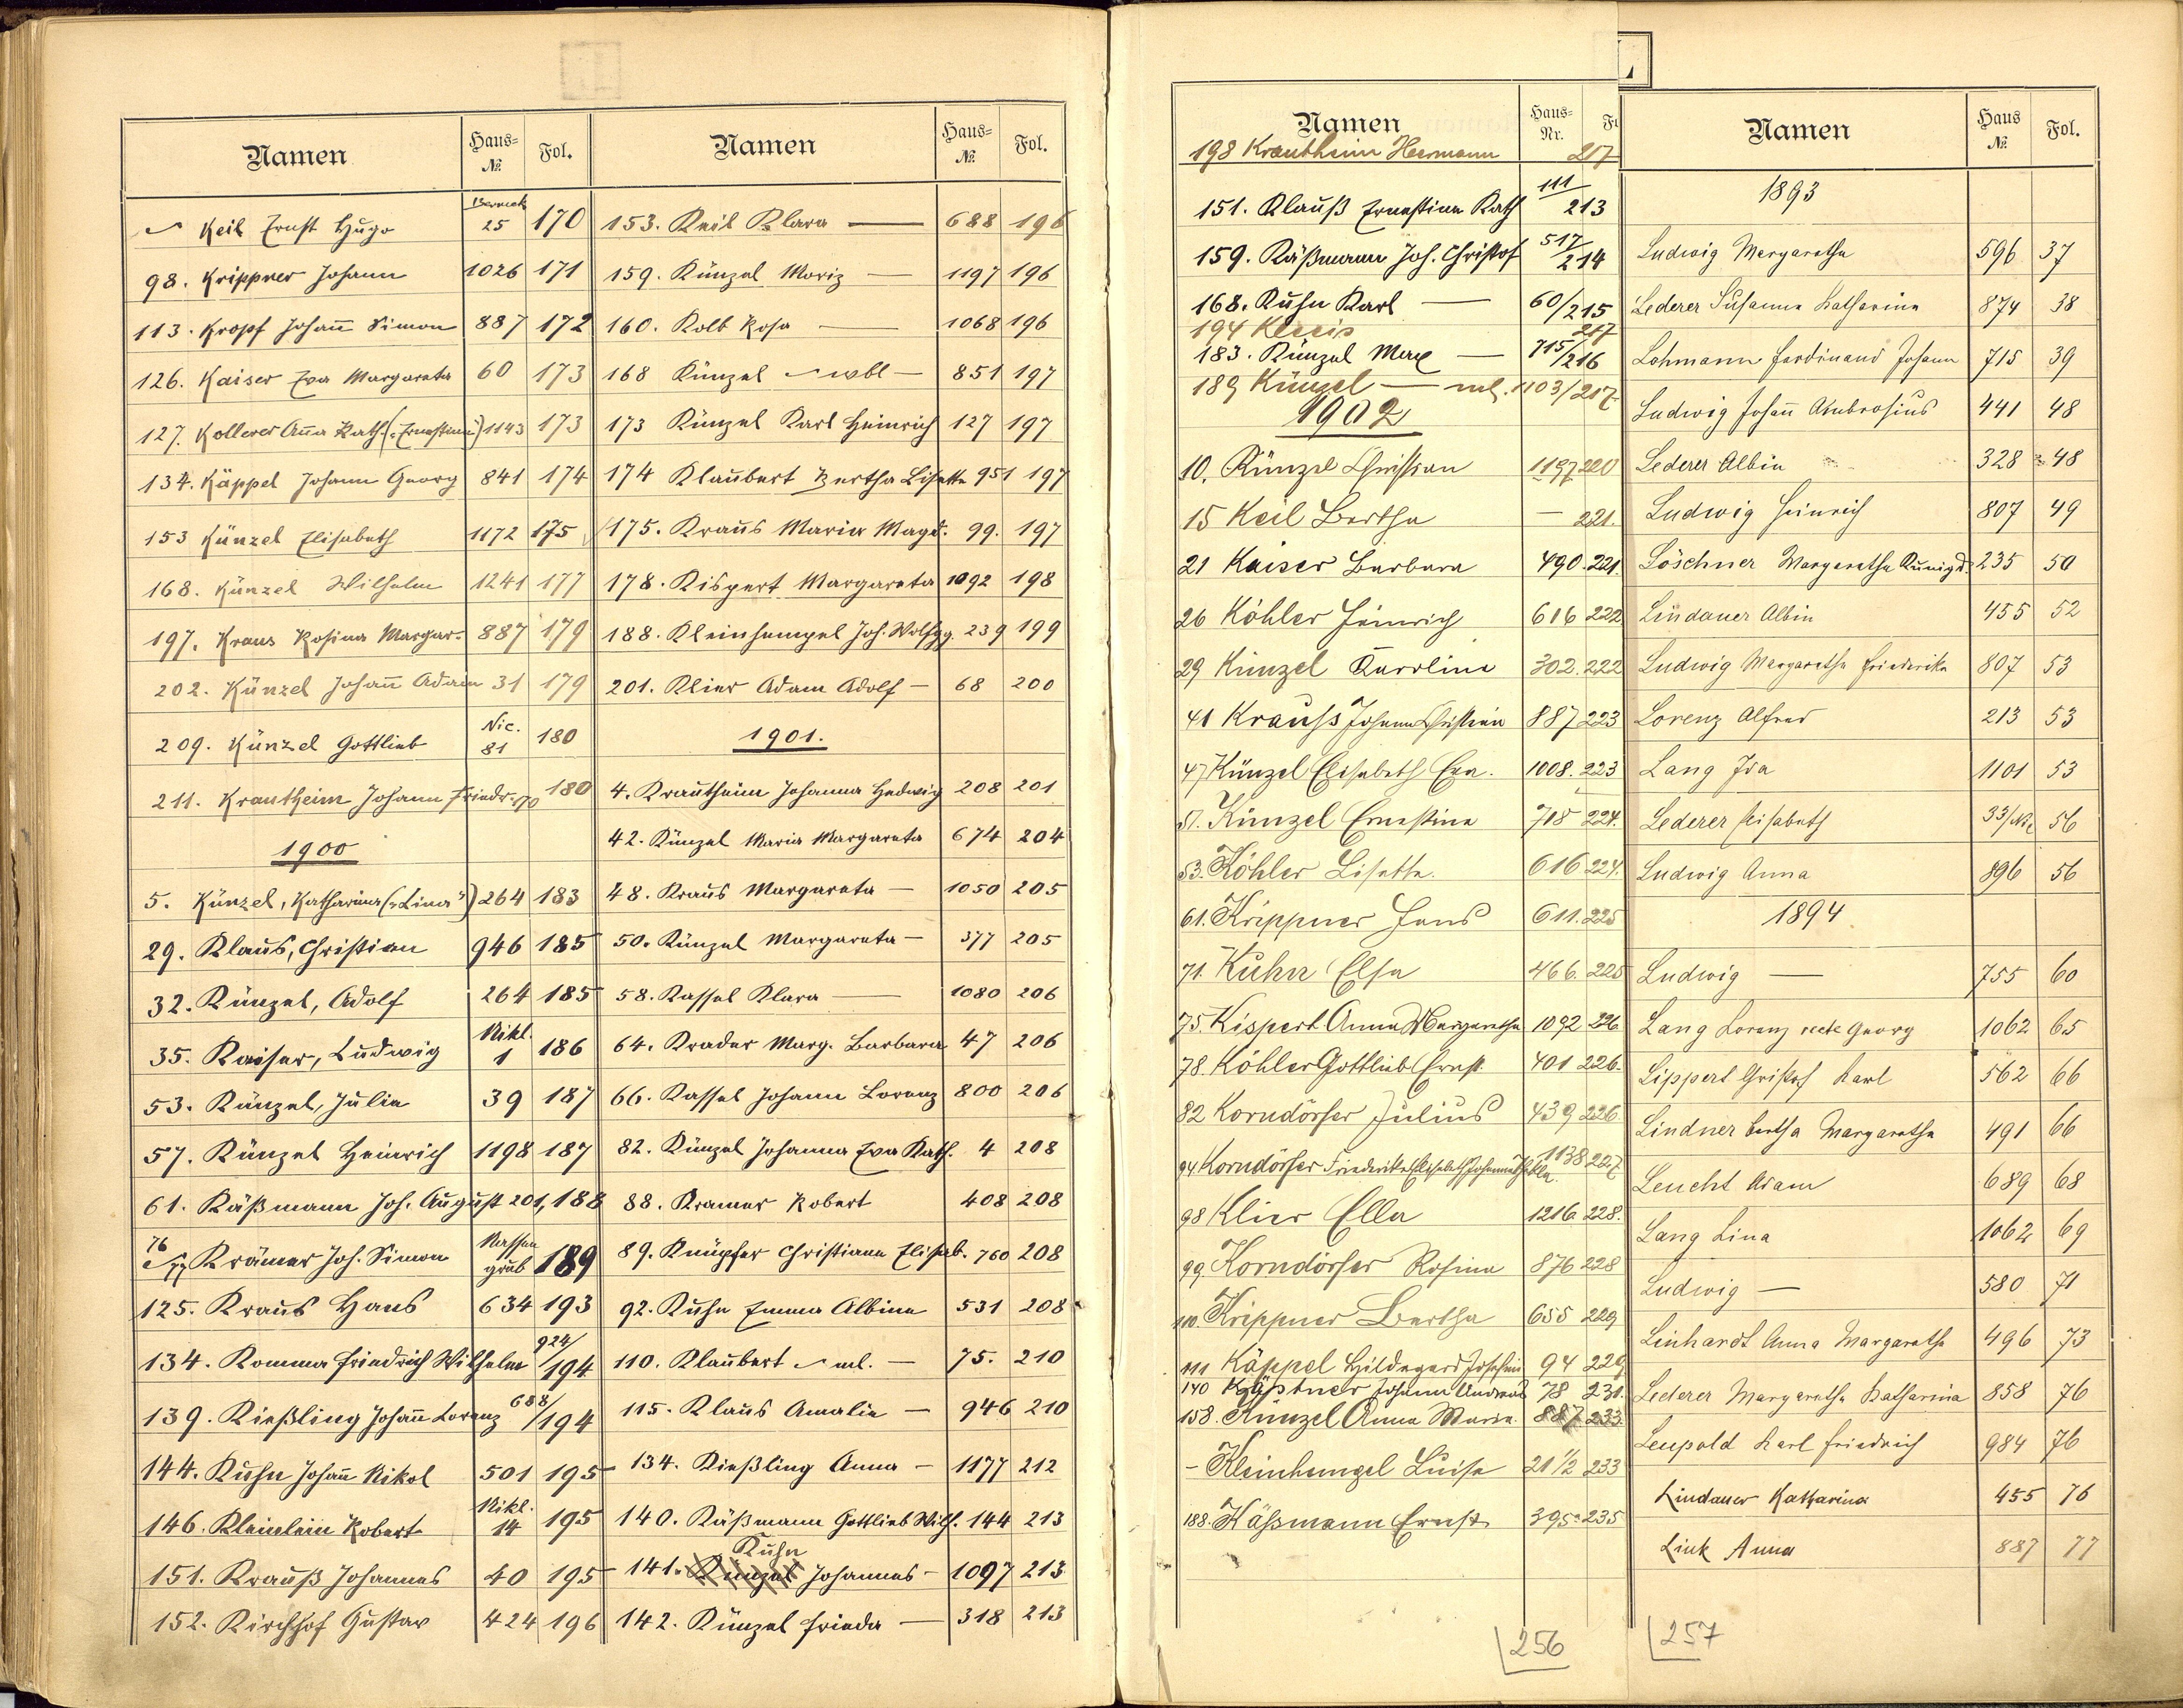 Namen Haus-№ Fol.
Keil Ernst Hugo Berneck 25 170
98. Krippner Johann 1026 171
113. Kropf Johann Simon 887 172
126. Kaiser Eva Margareta 60 173
127. Kollerer Anna Kath. („Ernestine“) 1143 173
134. Käppel Johann Georg 841 174
153 Künzel Elisabeth 1172 175
168. Künzel Wilhelm 1241 177
197. Kraus Rosina Margar. 887 179
202. Künzel Johann Adam 31 179
209. Künzel Gottlieb Nic. 81 180
211. Krautheim Johann Friedr. 70 180
1900
5. Künzel, Katharina („Lina“) 264 183
29. Klaus, Christian 946 185
32. Künzel, Adolf 264 185
35. Kaiser, Ludwig Nikl. 1 186
53. Künzel, Julia 39 187
57. Künzel Heinrich 1198 187
61. Käßmann Joh. August 201, 188
76 Krämer Joh. Simon Massengrub 189
125. Kraus Hans 634 193
134. Komma Friedrich Wilhelm 924/194
139. Kießling Johann Lorenz 688/194
144. Kuhn Johann Nikol 501 195
146. Kleinlein Robert Nikl. 14 195
151. Krauß Johannes 40 195
152. Kirchhof Gustav 424 196
Namen Haus-№ Fol.
153. Keil Klara — 688 196
159. Künzel Moriz — 1197 196
160. Kolb Rosa — 1068 196
168 Künzel wbl — 851 197
173 Künzel Karl Heinrich 127 197
174 Klaubert Bertha Lisette 951 197
175. Kraus Maria Magd. 99. 197
178. Kispert Margareta 1092 198
188. Kleinhempel Joh. Wolfgg. 239 199
201. Klier Adam Adolf — 68 200
1901.
4. Krautheim Johanna Hedwig 208 201
42. Künzel Maria Margareta 674 204
48. Kraus Margareta — 1050 205
50. Künzel Margareta — 377 205
58. Kassel Klara — 1080 206
64. Krader Marg. Barbara 47 206
66. Kassel Johann Lorenz 800 206
82. Künzel Johanna Eva Kath. 4 208
88. Kramer Robert 408 208
89. Knüpfer Christiana Elisab. 760 208
92. Kuhn Emma Albina 531 208
110. Klaubert ml. — 75. 210
115. Klaus Amalie — 946 210
134. Kießling Anna — 1177 212
140. Käßmann Gottlieb Wilh. 144 213
Kuhn
141. Künzel Johannes — 1097 213
142. Künzel Frieda — 318 213
Namen Haus-Nr.
198 Krautheim Hermann 217
151. Klauß Ernestina Kath 111 213
159. Käßmann Joh. Christof 517/214
168. Kuhn Karl — 60/215
194 217
183. Künzel Max — 715/216
189 Künzel — ml. 1103/217
1902
10. Künzel Christian 1197 220
15 Keil Bertha — 221.
21 Kaiser Barbara 490. 221.
26 Köhler Heinrich 616 222
29 Künzel Karoline 302. 222
41 Krauß Johann Christian 887 223
47 Künzel Elisabeth Eva. 1008. 223
51. Künzel Ernestine 718 224.
53. Köhler Lisette. 616 224.
61. Krippner Hans 611. 225
71. Kuhn Elsa 466. 225
75. Kispert Anna Margaretha 1092 226
78. Köhler Gottlieb Ernst. 401 226.
82 Korndörfer Julius 439 226
94 Korndörfer Friederike Elisabeth Johanna 1138 227
98 Klier Ella 1216. 228.
99. Korndörfer Rosina 876 228
110. Krippner Bertha 655 229
111 Käppel Hildegard Josephin 94 229
140 Kästner Johann Andreas 78 231.
158. Künzel Anna Maria. 887 233
- Kleinhempel Luise 21 1/2 233
188. Käßmann Ernst 395a 235
256
L
Namen Haus № Fol.
1893
Ludwig Margaretha 596 37
Lederer Susanna Katharina 874 38
Lohmann Ferdinand Johann 715 39
Ludwig Johann Ambrosius 441 48
Lederer Albin 328 48
Ludwig Heinrich 807 49
Löschner Margaretha Kunigd. 235 50
Lindauer Albin 455 52
Ludwig Margaretha Friederika 807 53
Lorenz Alfred 213 53
Lang Ida 1101 53
Lederer Elisabeth 33/Nic 56
Ludwig Anna 896 56
1894
Ludwig — 755 60
Lang Lorenz recte Georg 1062 65
Lippert Christof Karl 562 66
Lindner Bertha Margaretha 491 66
Leucht Adam 689 68
Lang Lina 1062 69
Ludwig — 580 71
Linhardt Anna Margaretha 496 73
Lederer Margaretha Katharina 858 76
Leupold Karl Friedrich 984 76
Lindauer Katharina 455 76
Link Anna 887 77
257